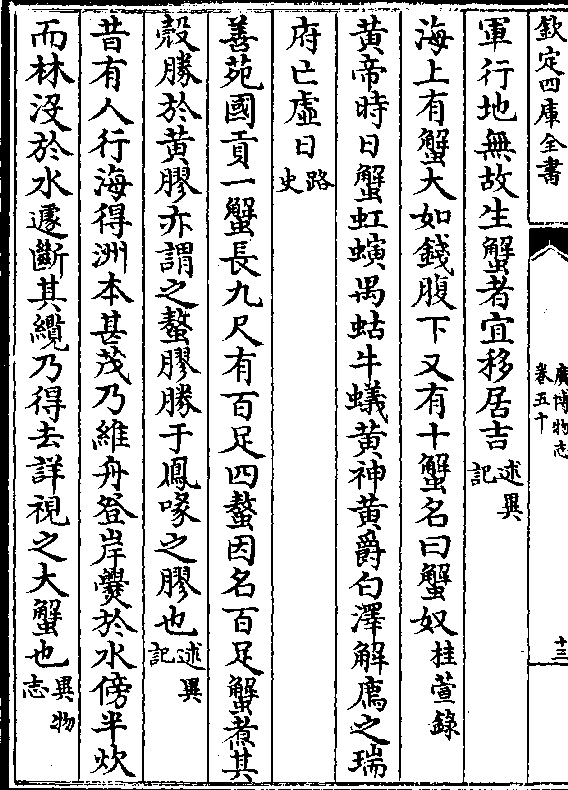 欽定四庫全書
廣博物志
卷五十
十三
軍行地無故生蟹者宜移居吉述異記
海上有蟹大如錢腹下又有十蟹名曰蟹奴桂萱錄
黃帝時日蟹虹螾禺蛄牛蟻黃神黃爵白澤解廌之瑞
府亡虛日路史
善苑國貢一蟹長九尺有百足四螯因名百足蟹煮其
殼勝於黃膠亦謂之螯膠勝于鳳喙之膠也述異記
昔有人行海得洲本甚茂乃維舟登岸爨於水傍半炊
而林沒於水遽斷其纜乃得去詳視之大蟹也異物志